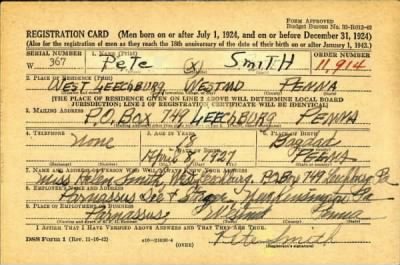 FORM APPROVED
Budget Bureau No. 33-R012-42
REGISTRATION CARD—(Men born on or after July 1, 1924, and on or before December 31, 1924)
(Also for the registration of men as they reach the 18th anniversary of the date of their birth on or after January 1, 1943.)
SERIAL NUMBER 1. NAME (Print) ORDER NUMBER
W 367 Pete (X) SMITH 11,914
2. PLACE OF RESIDENCE (Print)
WEST LEECHBURG WESTMD PENNA
[THE PLACE OF RESIDENCE GIVEN ON LINE 2 ABOVE WILL DETERMINE LOCAL BOARD
JURISDICTION; LINE 2 OF REGISTRATION CERTIFICATE WILL BE IDENTICAL]
3. MAILING ADDRESS
P.O. BOX 749 LEECHBURG PENNA
4. TELEPHONE 5. AGE IN YEARS 6. PLACE OF BIRTH
None 18 Bagdad
DATE OF BIRTH
April 8, 1927 PENNA
7. NAME AND ADDRESS OF PERSON WHO WILL ALWAYS KNOW YOUR ADDRESS
Miss Smith, West Leechburg, P.O. Box 749 Leechburg Pa
8. EMPLOYER'S NAME AND ADDRESS
Parnassus New Kensington Pa
9. PLACE OF EMPLOYMENT OR BUSINESS
Parnassus, Penna
I AFFIRM THAT I HAVE VERIFIED ABOVE ANSWERS AND THAT THEY ARE TRUE.
DSS Form 1 (Rev. 11-16-42) (OVER) Pete Smith
(Registrant's signature)